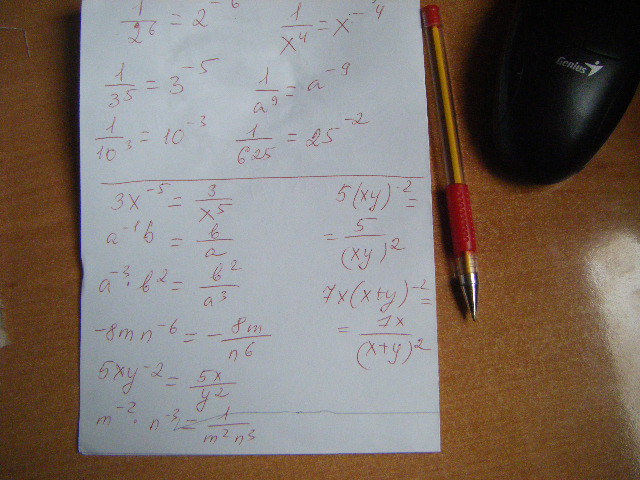 1/2⁶ = 2⁻⁶ 1/x⁴ = x⁻⁴
1/3⁵ = 3⁻⁵ 1/a⁹ = a⁻⁹
1/10³ = 10⁻³ 1/625 = 25⁻²
3x⁻⁵ = 3/x⁵
a⁻¹b = b/a
a⁻³·b² = b²/a³
-8mn⁻⁶ = -8m/n⁶
5xy⁻² = 5x/y²
m⁻²·n⁻³ = 1/m²n³
5(xy)⁻² =
= 5/(xy)²
7x(x+y)⁻² =
= 7x/(x+y)²
Genius